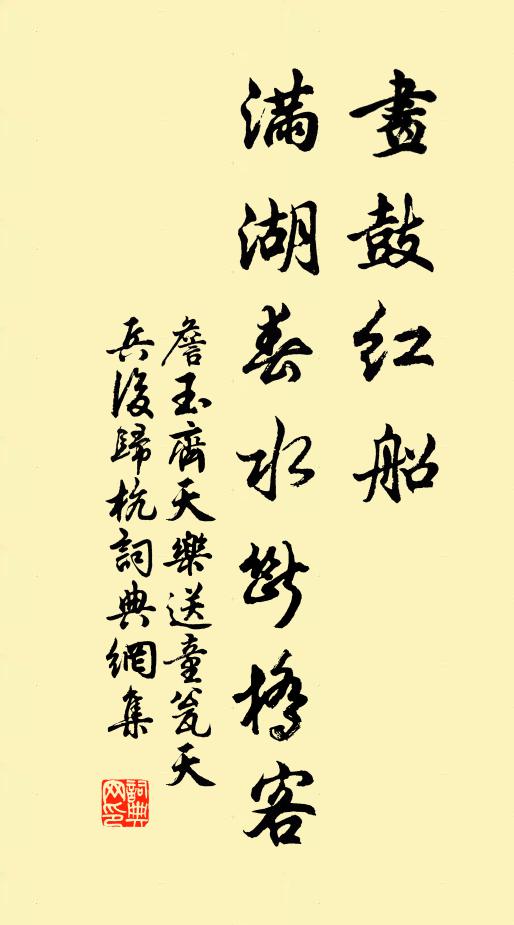 畫鼓紅船
滿湖春水斷橋客
詹玉齊天樂送童瓮天
兵後歸杭詞典網集
詞典网印